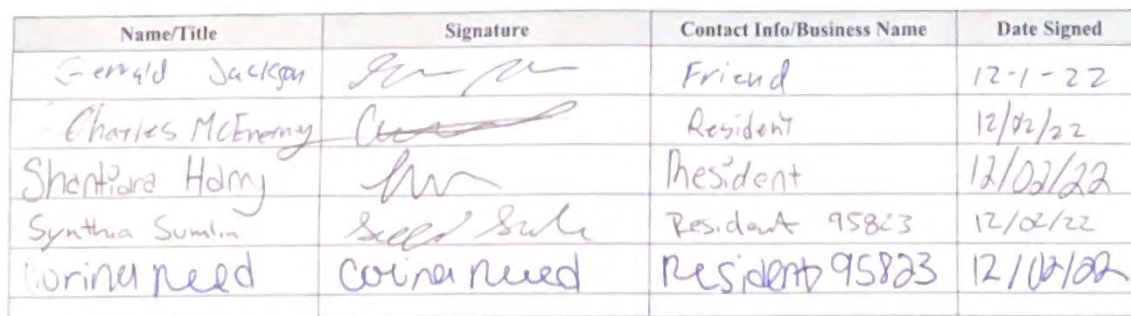 Name/Title Signature Contact Info/Business Name Date Signed
Gerrald Jackson Friend 12-1-22
Charles McEnerny Resident 12/02/22
Shantiara Resident 12/02/22
Synthia Sumlin Resident 95823 12/02/22
corina reed corina reed Resident 95823 12/02/22